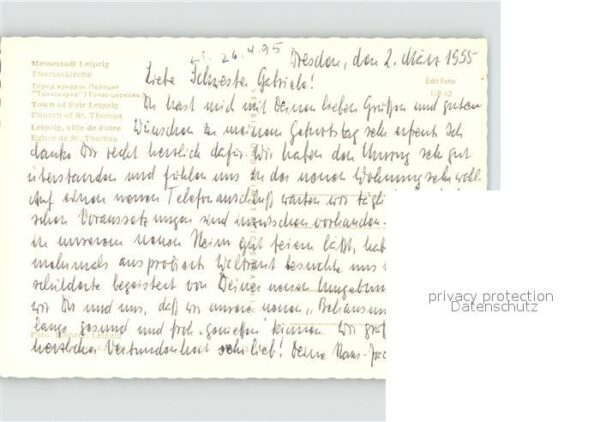 26.4.95
Dresden, den 2. März 1995
Messestadt Leipzig
Thomaskirche
Liebe Schwester Gabriele!
Город ярмарок Лейпциг
"Томаскирхе"/Томас-церковь
Town of Fair Leipzig
Church of St. Thomas
Leipzig, ville de Foire
Eglise de St. Thomas
Echt Foto
Du hast mich mit Deinen lieben Grüßen und guten
Wünschen zu meinem Geburtstag sehr erfreut. Ich
danke Dir recht herzlich dafür. Wir haben den Umzug sehr gut
überstanden und fühlen uns in der neuen Wohnung sehr wohl.
Auf einen neuen Telefonanschluß warten wir tägli
schen Voraussetzungen sind inzwischen vorhanden.
in unserem neuen Heim gut feiern läßt, hab
mehrmals ausprobiert. Waltraut besuchte uns
schilderte begeistert von Deiner neuen Umgebung
wir Dir und uns, daß wir unsere neuen "Behausun
lange gesund und froh genießen können. Wir grüß
herzlicher Verbundenheit sehr lieb! Deine Hans-
privacy protection
Datenschutz